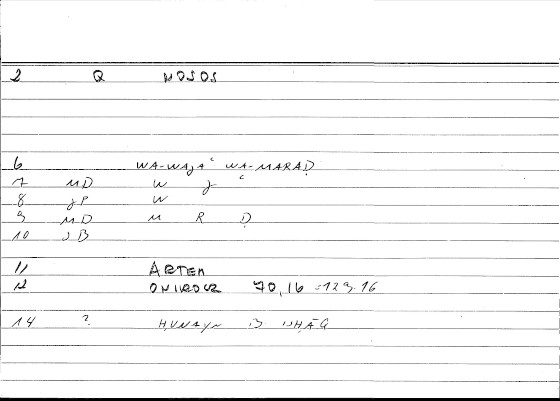 2 Q NOSOS
6 WA-WAJAʿ WA-MARAḌ
7 MD W J ʿ
8 JP W
9 MD M R Ḍ
10 JB
11 ARTEM
12 ONIROCR 70,16 =123.16
14 ? ḤUNAYN B ISḤĀQ